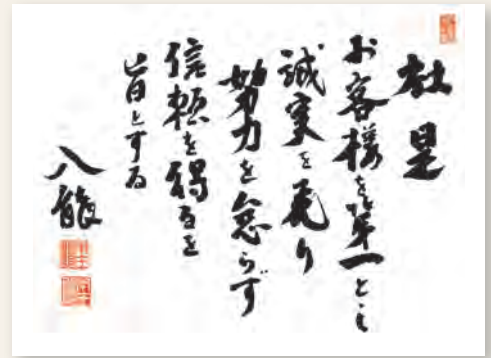 社是
お客様を第一とし
誠実を売り
努力を怠らず
信頼を得るを
旨とする
八龍